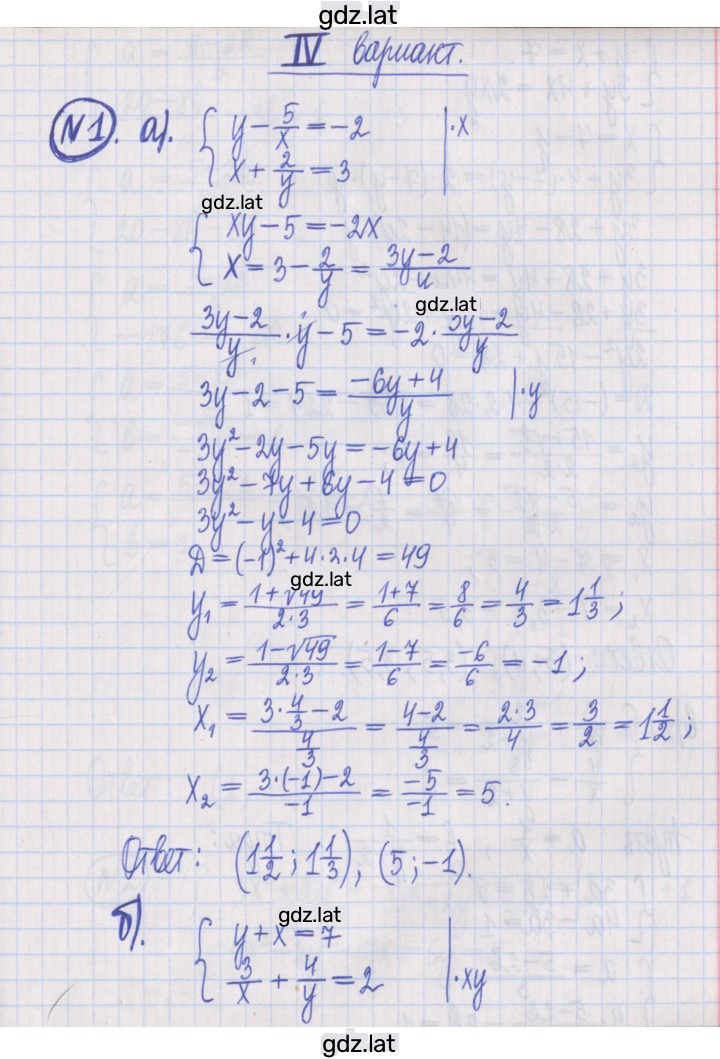 gdz.lat
IV вариант.
№1. а). { y − 5/x = −2 | ·x
x + 2/y = 3
gdz.lat
{ xy − 5 = −2x
x = 3 − 2/y = (3y − 2)/y
gdz.lat
(3y − 2)/y · y − 5 = −2 · (3y − 2)/y
3y − 2 − 5 = (−6y + 4)/y | ·y
3y² − 2y − 5y = −6y + 4
3y² − 7y + 6y − 4 = 0
3y² − y − 4 = 0
D = (−1)² + 4·3·4 = 49
gdz.lat
y₁ = (1 + √49)/(2·3) = (1+7)/6 = 8/6 = 4/3 = 1 1/3 ;
y₂ = (1 − √49)/(2·3) = (1−7)/6 = −6/6 = −1 ;
x₁ = (3 · 4/3 − 2)/(4/3) = (4−2)/(4/3) = (2·3)/4 = 3/2 = 1 1/2 ;
x₂ = (3·(−1) − 2)/(−1) = −5/−1 = 5.
Ответ: (1 1/2 ; 1 1/3), (5 ; −1).
gdz.lat
б). { y + x = 7
3/x + 4/y = 2 | ·xy
gdz.lat